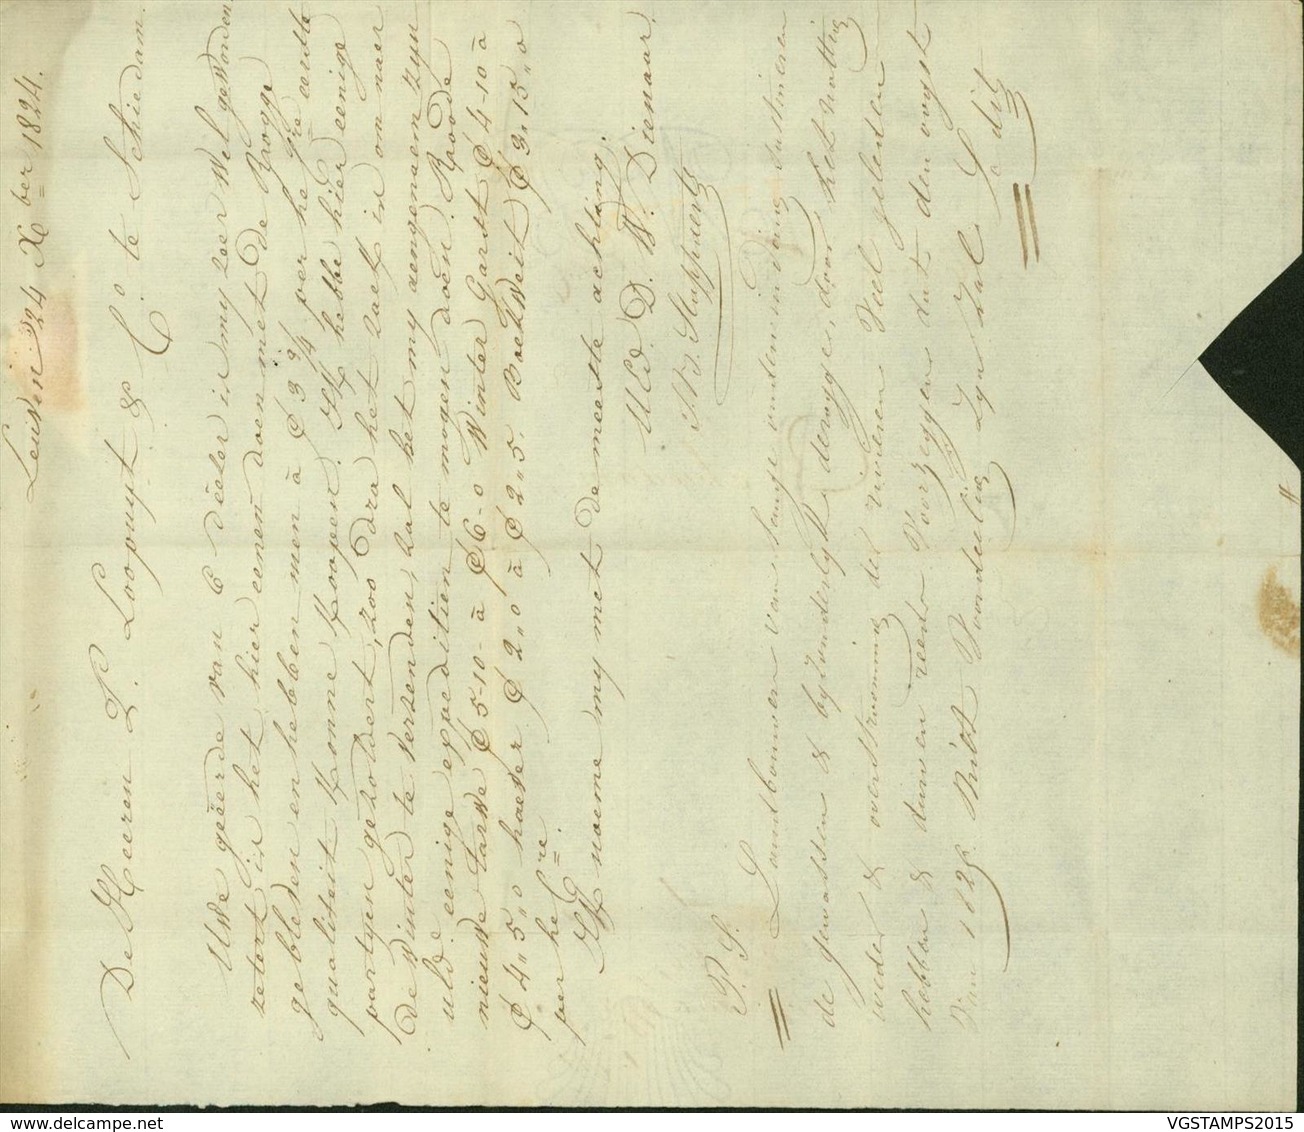 Leuven 24 Xber 1824.
De Heeren P. Loopuyt & Co. te Schiedam.
UWe geëerde van 6 deezer is my zeer wel geworden
zetert is het hier eenen doen met de Rogge
gebleven en hebben men à ₲ 3 3/4 per he gre oude
qualiteit konne koopen. Ik hebbe hier eenige
partyen gezoldert, zoo dra het zaet is om naer
de Winter te versenden, zal het my aengenaem zyn
uld: eenige expeditien te mogen doen. Roode
nieuwe tarwe ₲ 5-10- à ₲ 6-0 Winter Garst ₲ 4-10 à
₲ 4"5"0 haever ₲ 2"0 à ₲ 2"5. Boekweit ₲ 3"15"0
per he gre.
Ik noeme my met de meeste achting
Uld. D. W. Dienaar
J. Stappaerts
P. S.
Landbouwers van
de gewassen & byzonderlyk door het nattig
weder & overstrooming der rivieren veel geleden
hebben & dunnen reeds voorzeggen dat den oogst
van 1825. Niet voordeelig zyn zal.
dit
VGSTAMPS2015